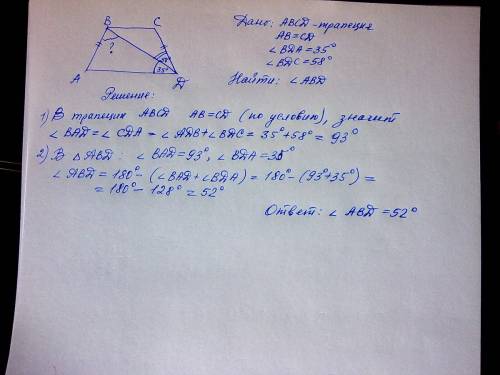 B C
Дано: ABCD - трапеция
AB = CD
∠BDA = 35°
∠BDC = 58°
Найти: ∠ABD
?
58°
35°
A D
Решение:
1) В трапеции ABCD AB = CD (по условию), значит
∠BAD = ∠CDA = ∠ADB + ∠BDC = 35° + 58° = 93°
2) В △ABD: ∠BAD = 93°, ∠BDA = 35°
∠ABD = 180° - (∠BAD + ∠BDA) = 180° - (93° + 35°) =
= 180° - 128° = 52°
Ответ: ∠ABD = 52°